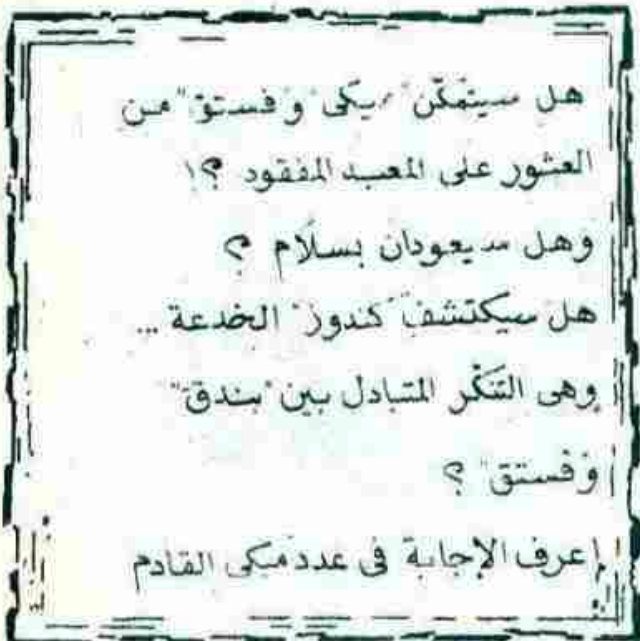 هل سيتمكّن "ميكى" و"فستق" من
العثور على المعبد المفقود ؟!
وهل سيعودان بسلام ؟
هل سيكتشف "كندوز" الخدعة ...
وهى التنكّر المتبادل بين "بندق"
و"فستق" ؟
إعرف الإجابة فى عدد ميكى القادم